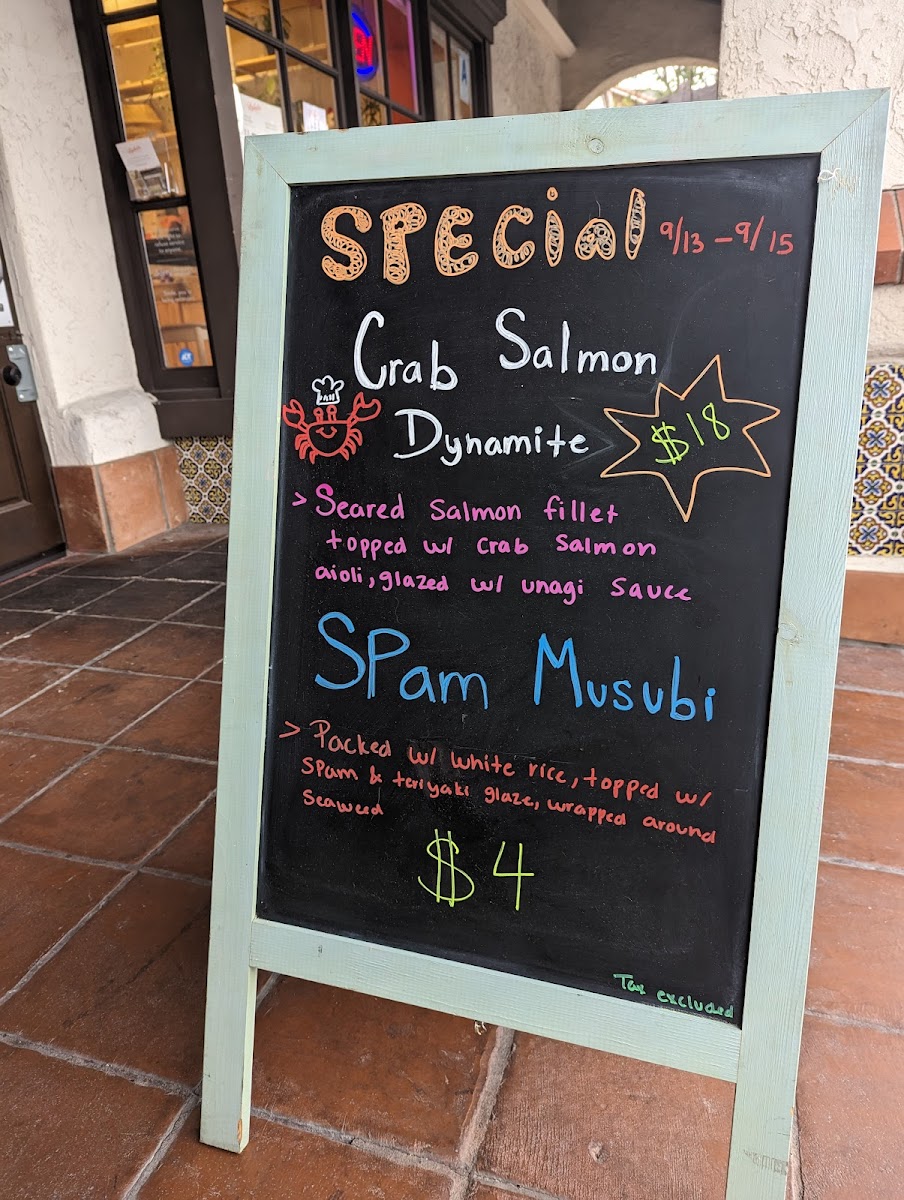 SPECial 9/13 - 9/15
Crab Salmon
Dynamite $18
> Seared Salmon fillet
topped w/ crab Salmon
aioli, glazed w/ unagi sauce
SPam Musubi
> Packed w/ white rice, topped w/
spam & teriyaki glaze, wrapped around
Seaweed
$4
Tax excluded